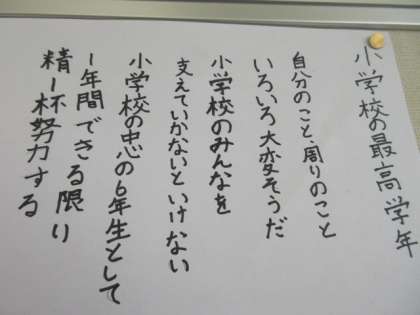 小学校の最高学年
自分のこと周りのこと
いろいろ大変そうだ
小学校のみんなを
支えていかないといけない
小学校の中心の6年生として
1年間できる限り
精一杯努力する